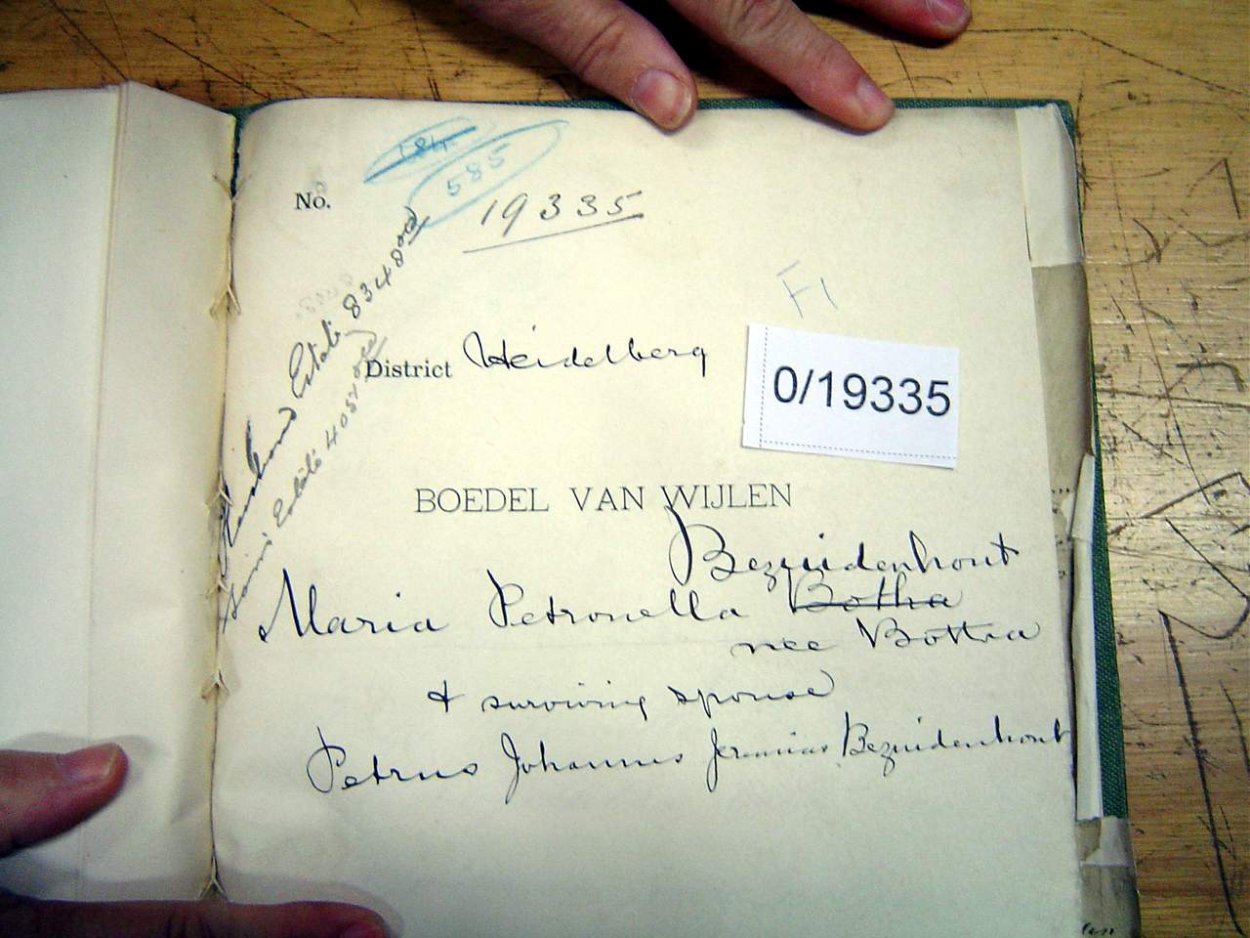 585
No. 19335
F1
District Heidelberg
0/19335
Husband's Estate 8348
Estate 4051
BOEDEL VAN WIJLEN
Bezuidenhout
Maria Petronella Botha
nee Botha
& surviving spouse
Petrus Johannes Jeremias Bezuidenhout